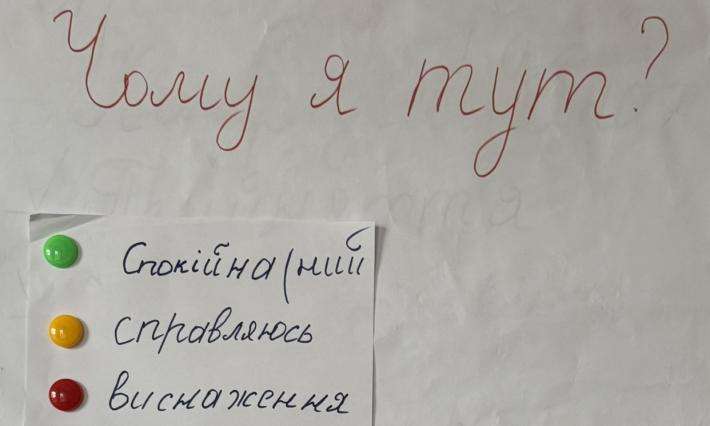 Чому я тут?
Спокійна(ний
справляюсь
виснаження